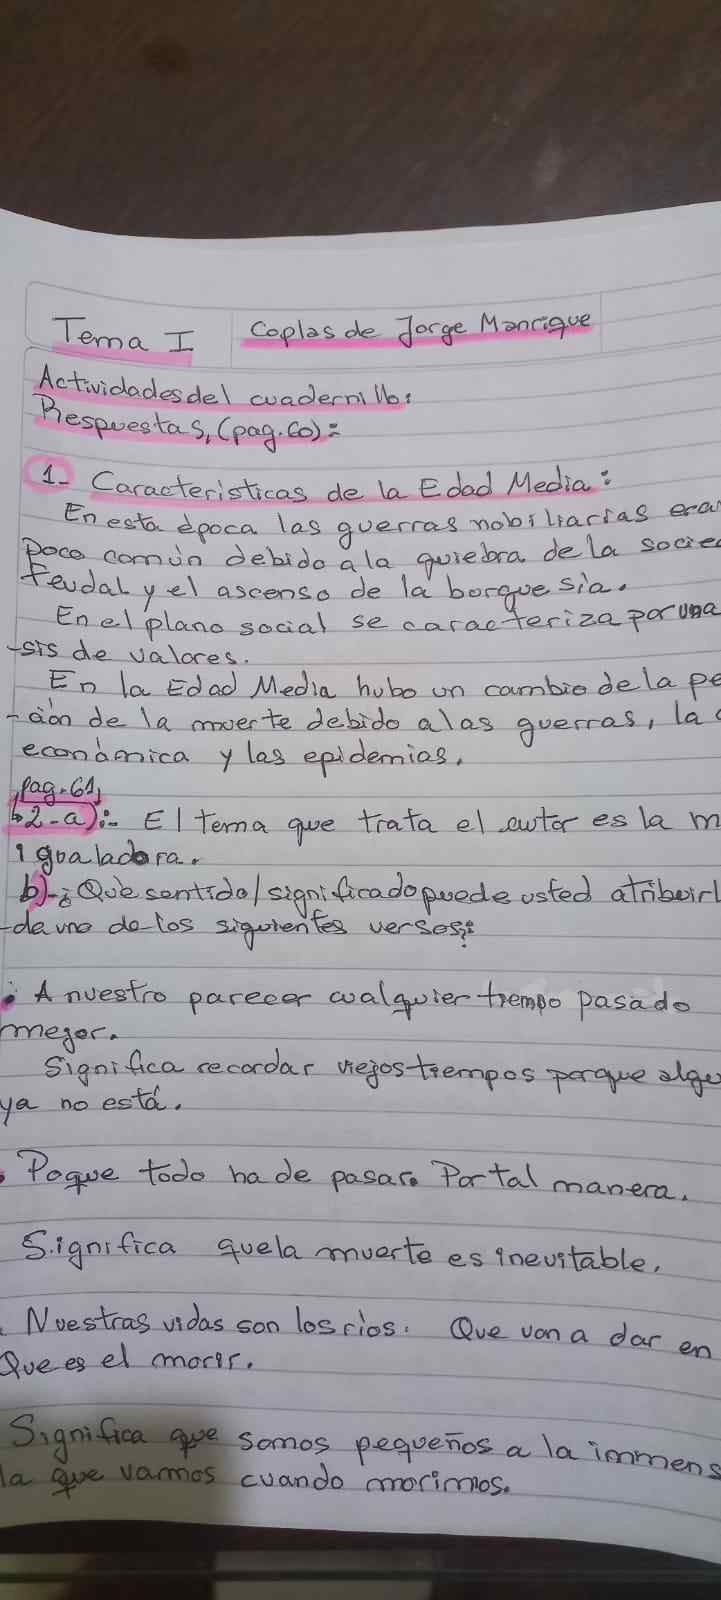 Tema I Coplas de Jorge Manrique
Actividades del cuadernillo:
Respuestas, (pag. 60):
1- Caracteristicas de la Edad Media:
En esta época las guerras nobiliarias era
poco común debido a la quiebra de la socie
feudal y el ascenso de la borguesia.
En el plano social se caracteriza por una
-sis de valores.
En la Edad Media hubo un cambio de la pe
-ción de la muerte debido a las guerras, la c
económica y las epidemias.
pag. 61,
2-a):- El tema que trata el autor es la m
igualadora.
b)-¿Qué sentido/significado puede usted atribuirl
-da uno de los siguientes versos?:
• A nuestro parecer cualquier tiempo pasado
mejor.
Significa recordar viejos tiempos porque algu
ya no está.
• Poque todo ha de pasar. Por tal manera.
Significa que la muerte es inevitable.
. Nuestras vidas son los rios. Que van a dar en
Que es el morir.
Significa que somos pequeños a la immens
la que vamos cuando morimos.